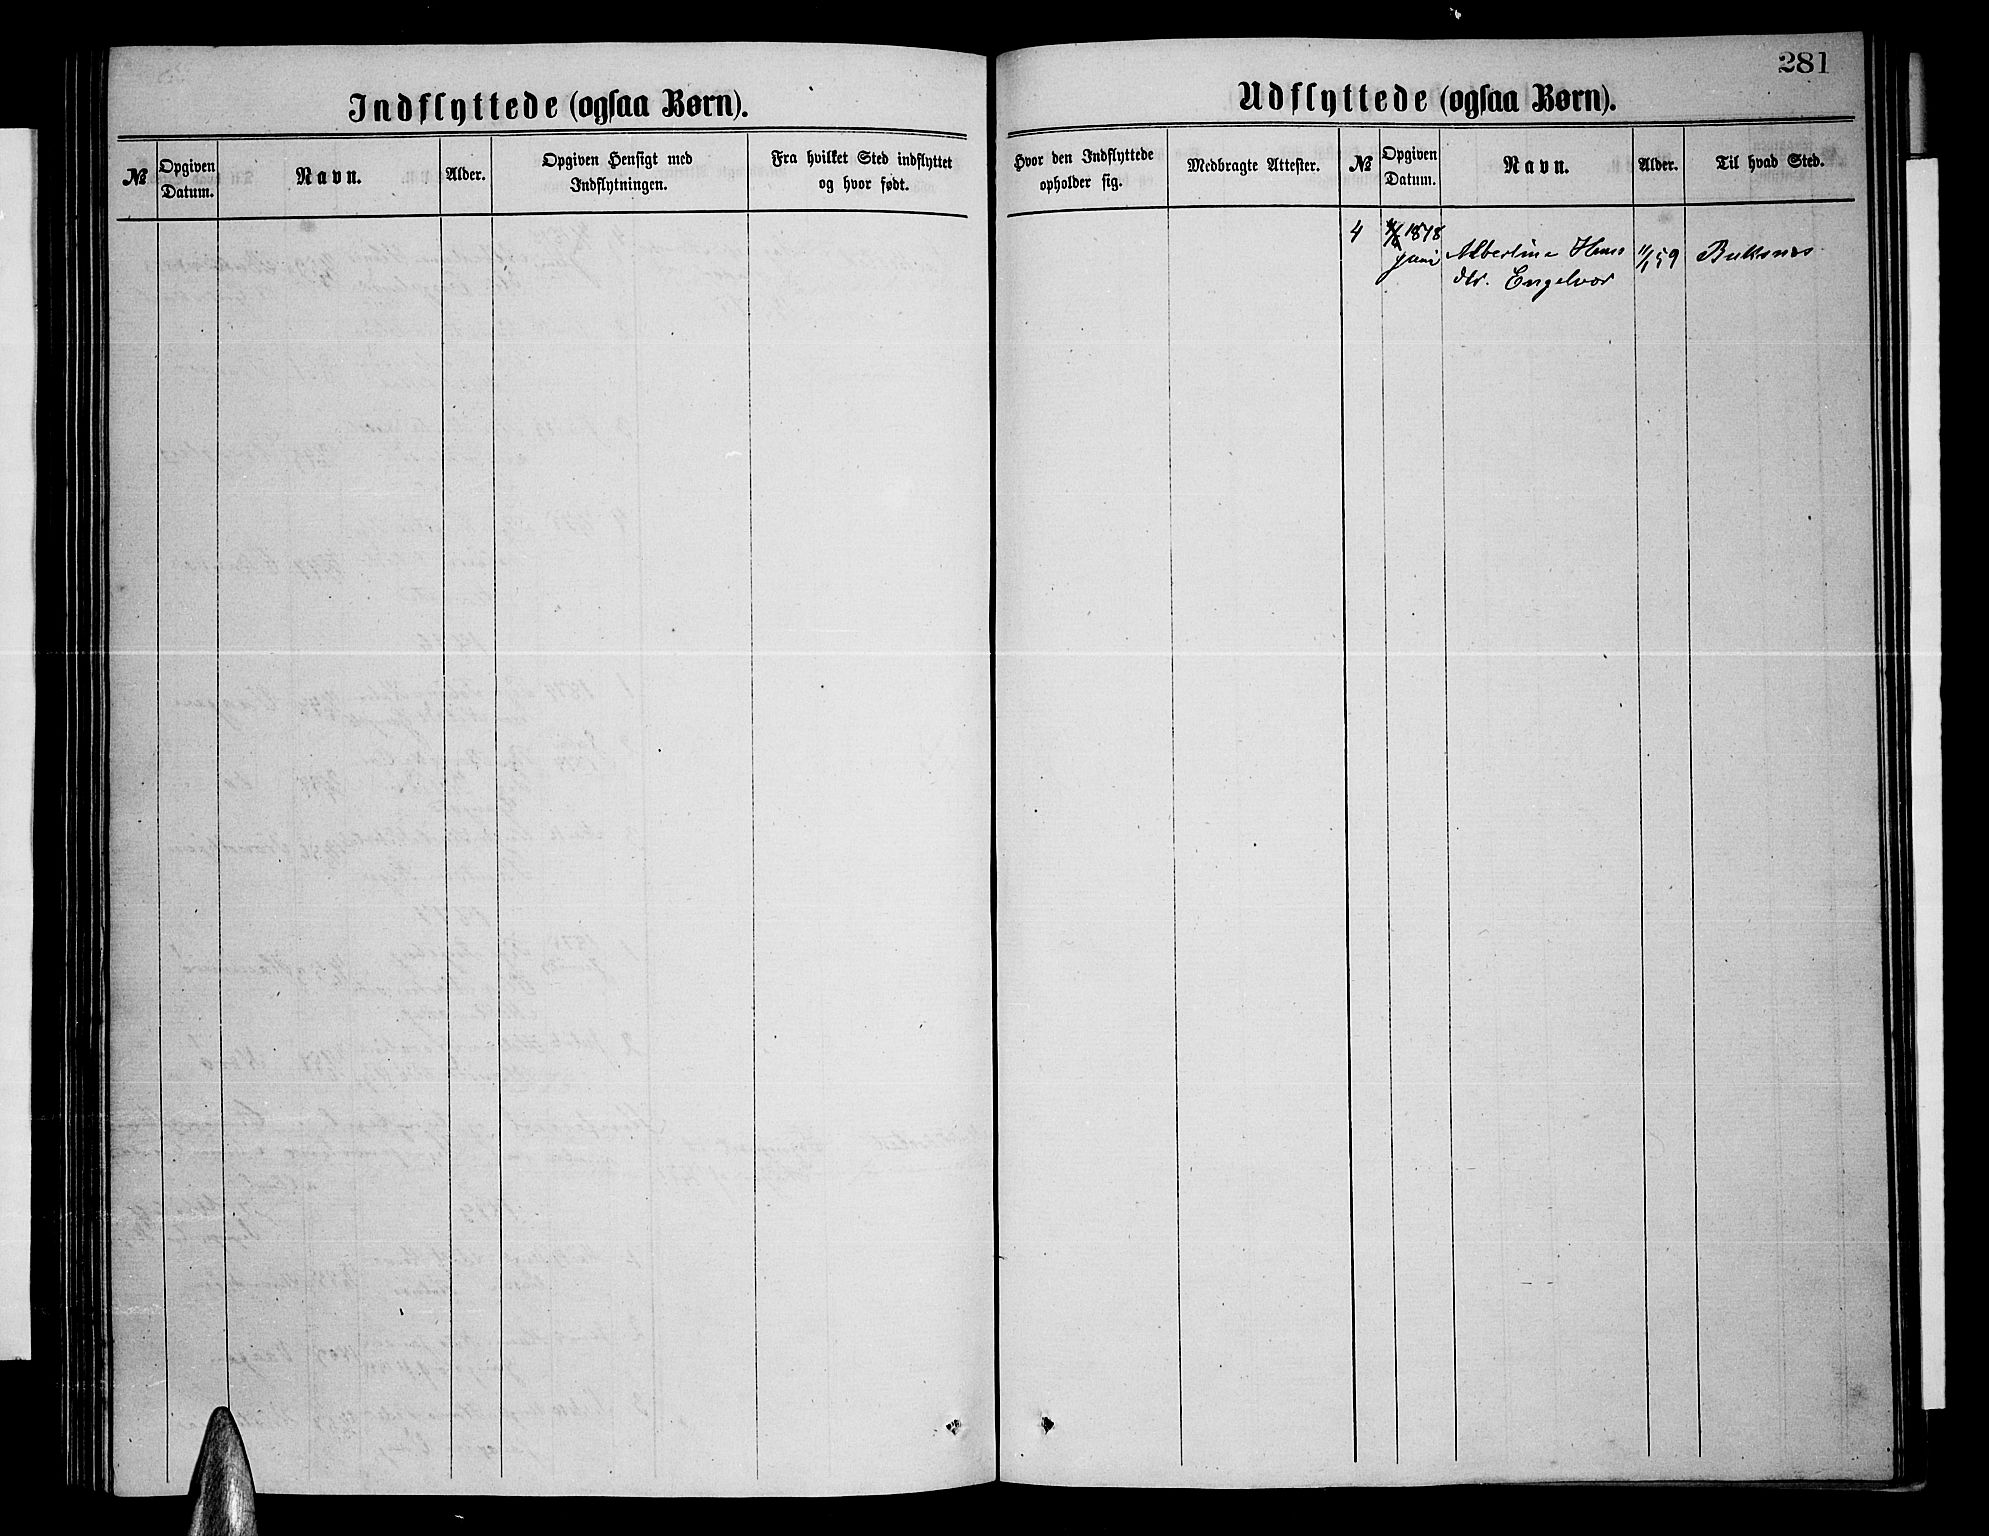 281
Indflyttede (ogsaa Børn).
№
Opgiven Datum.
Navn.
Alder.
Opgiven Hensigt med Indflytningen.
Fra hvilket Sted indflyttet og hvor født.
Udflyttede (ogsaa Børn).
Hvor den Indflyttede opholder sig.
Medbragte Attester.
№
Opgiven Datum.
Navn.
Alder.
Til hvad Sted.
4
1878
Juni
Albertine Hans
dtr. Engelvær
11/1 59
Buksnes